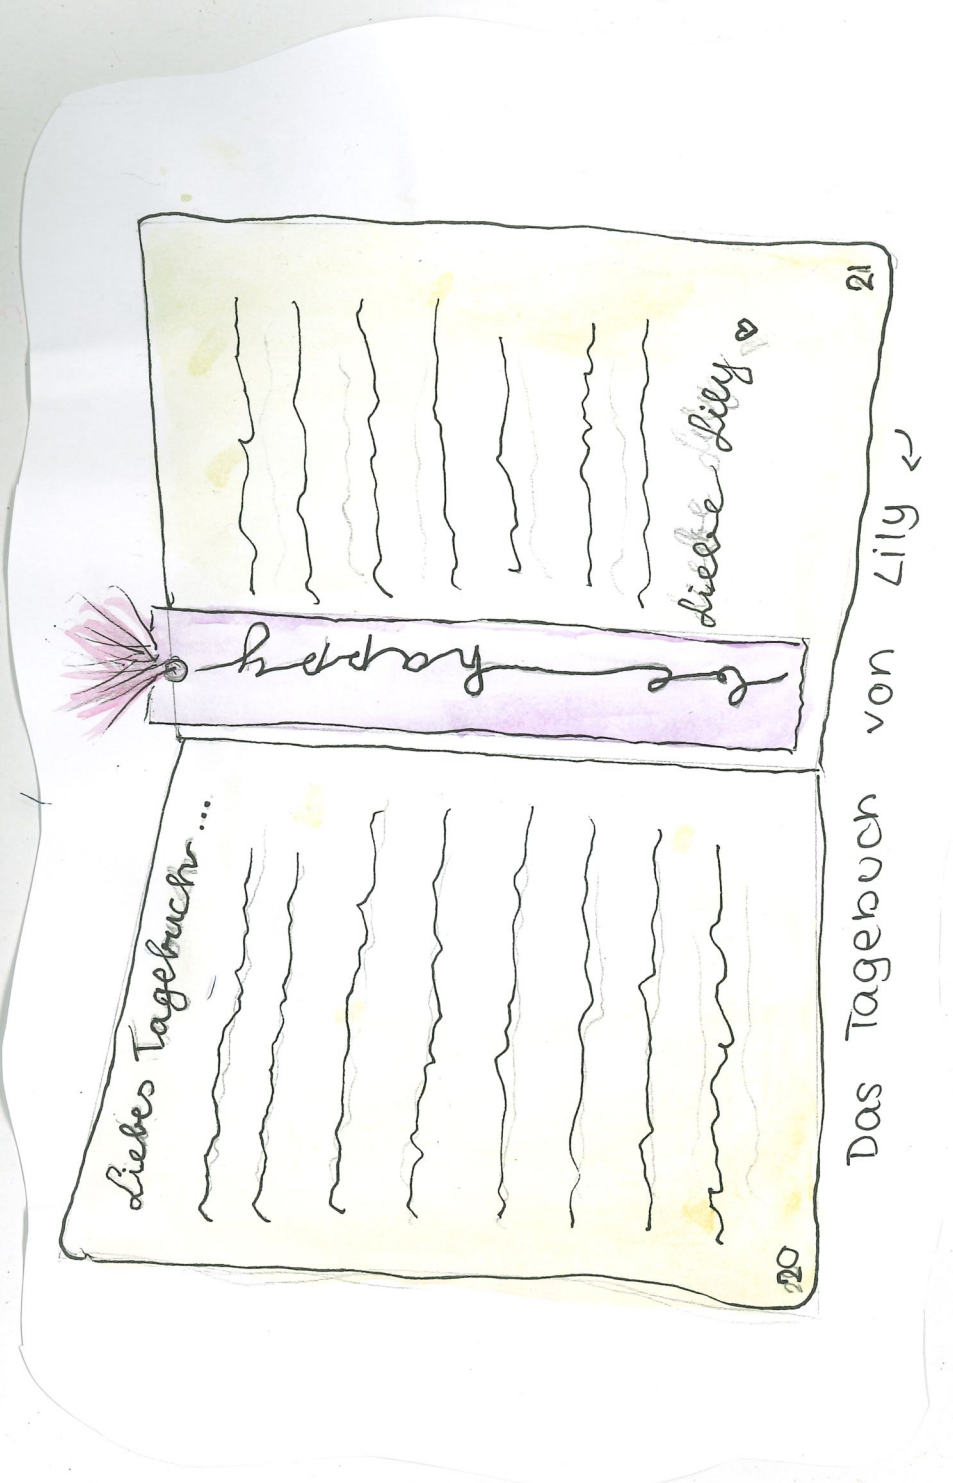 Liebes Tagebuch...
20
be happy
Liebe Lily ♡
21
Das Tagebuch von Lily ↵